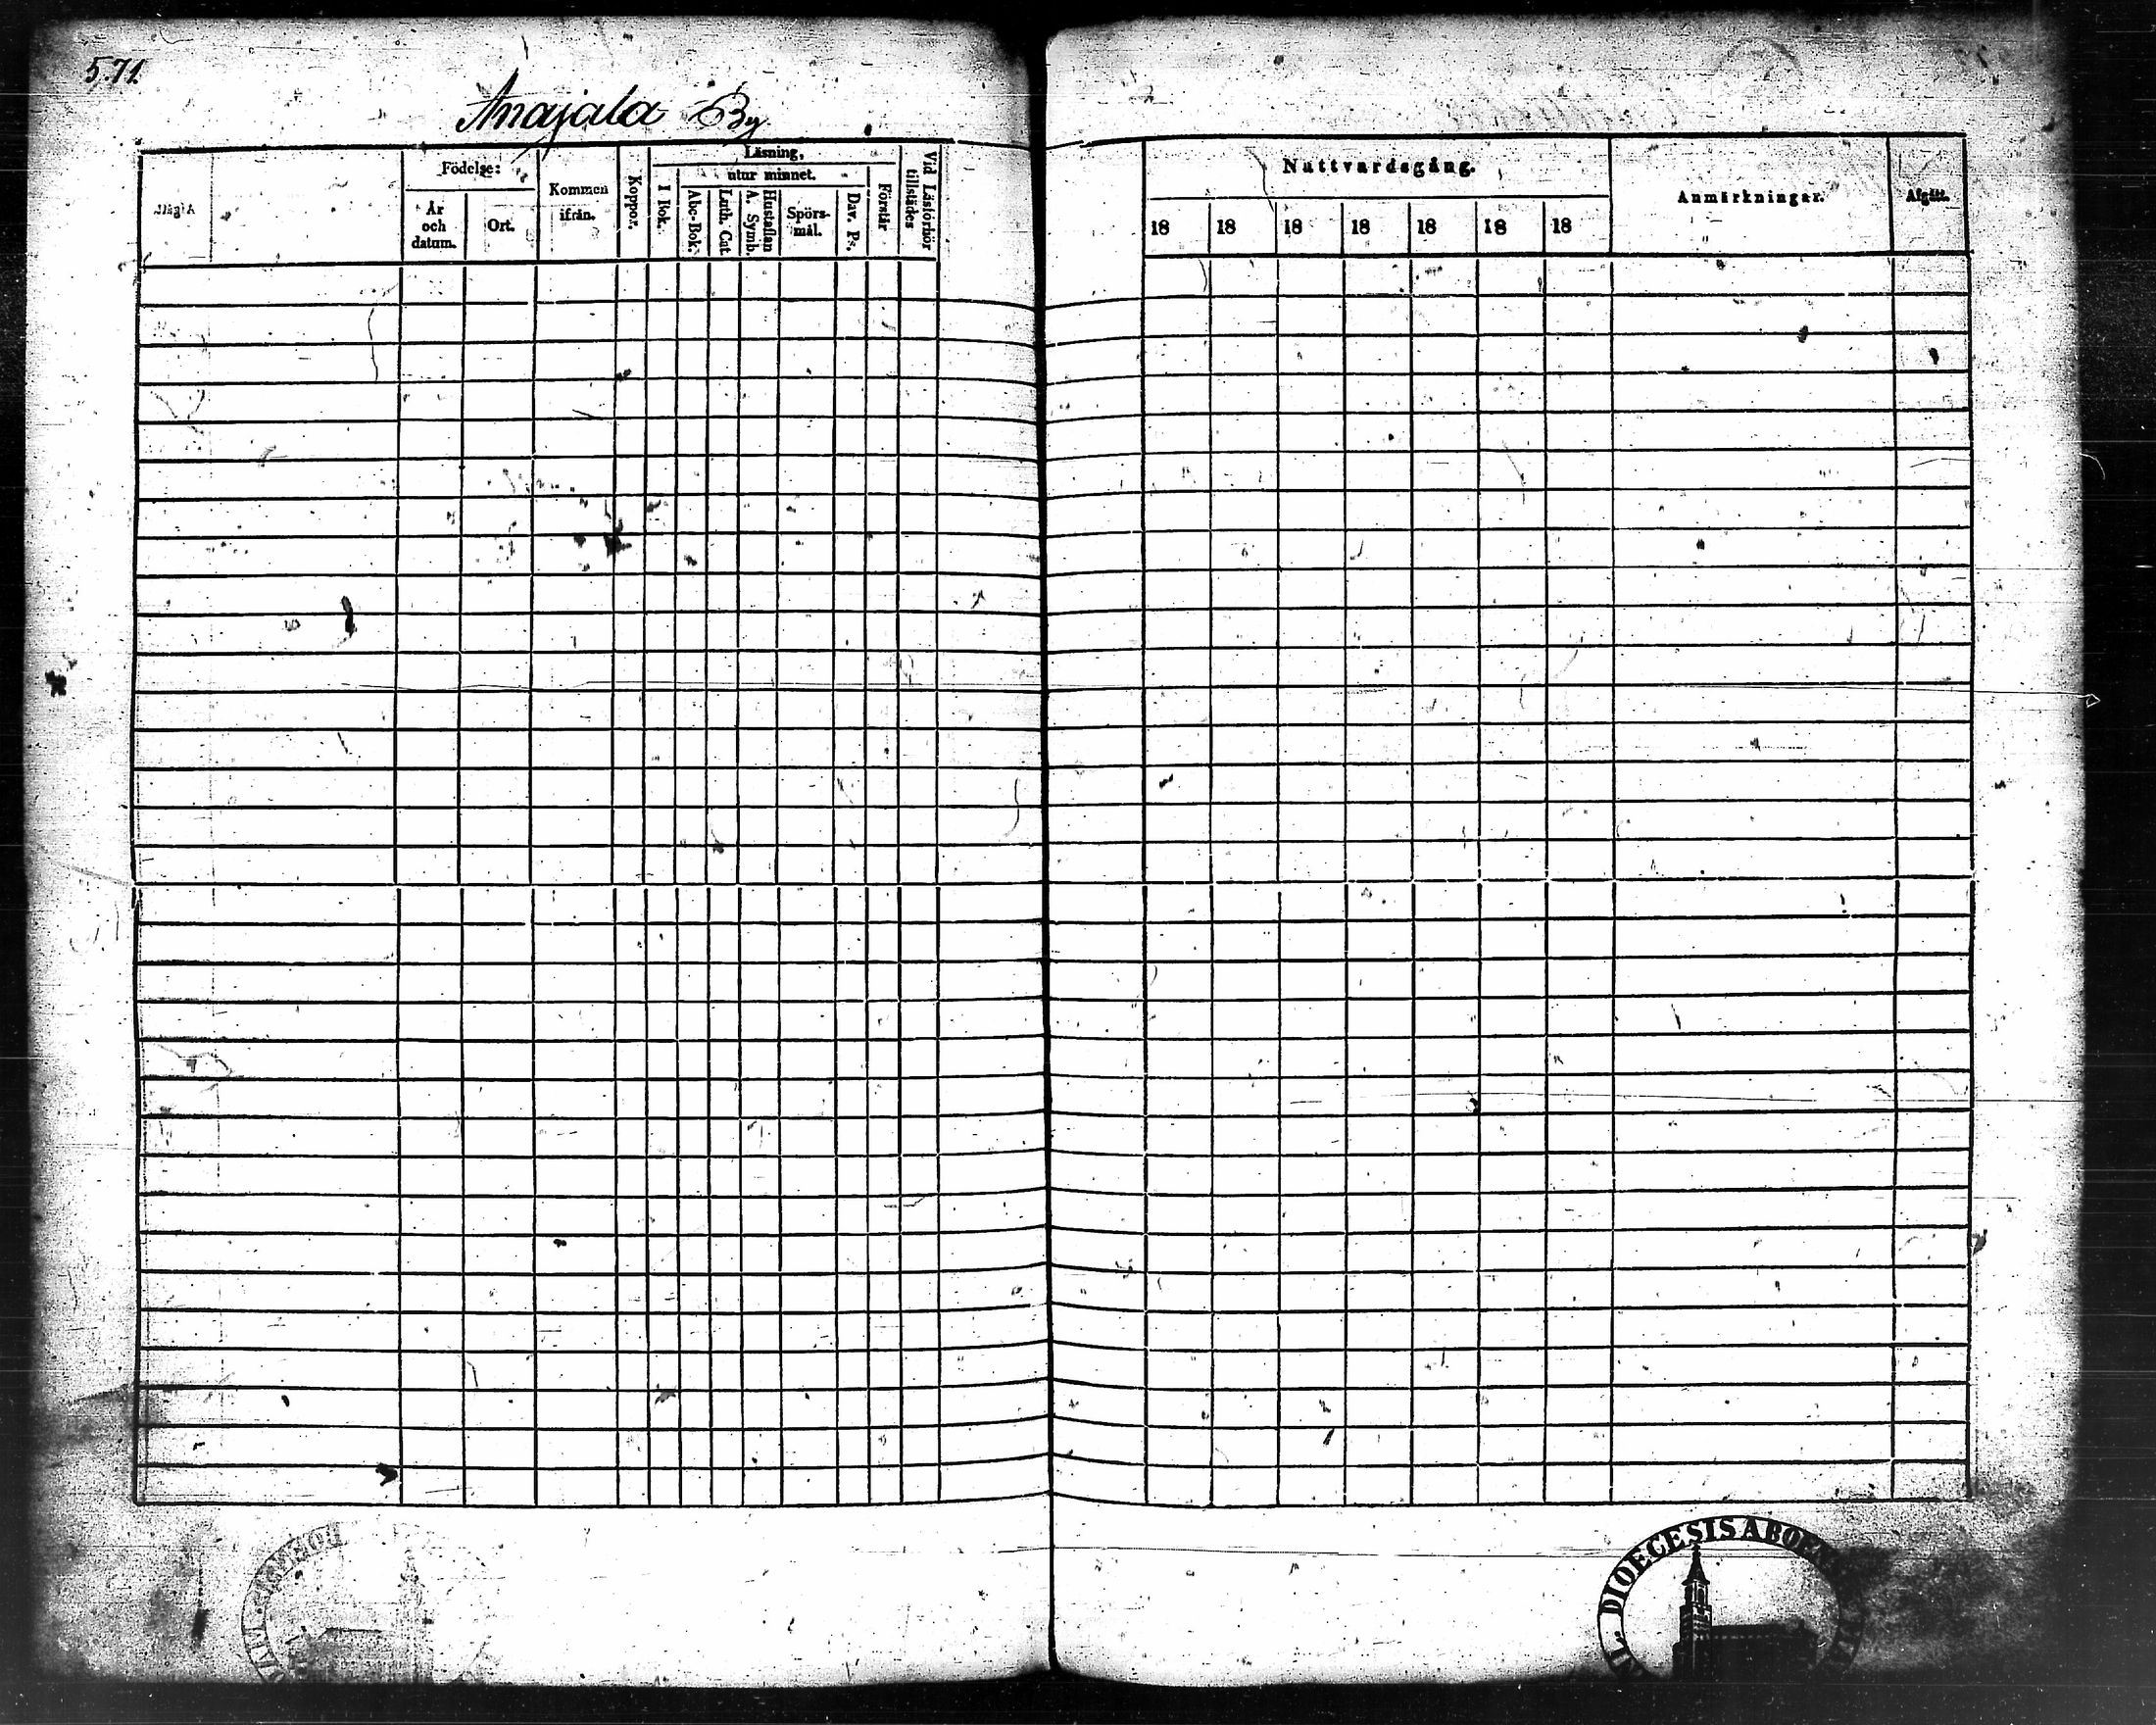 571.
Anajala By
Födelse:
År och datum.
Ort.
Kommen ifrån.
Koppor.
Läsning,
utur minnet.
I Bok.
Abc-Bok.
Luth. Cat.
Hustaflan A. Symb.
Spörs-mål.
Dav. Ps.
Förstår
Vid Läsförhör tillstädes
Nattvardsgång.
18 18 18 18 18 18 18
Anmärkningar.
Afgått.
DIOECESIS